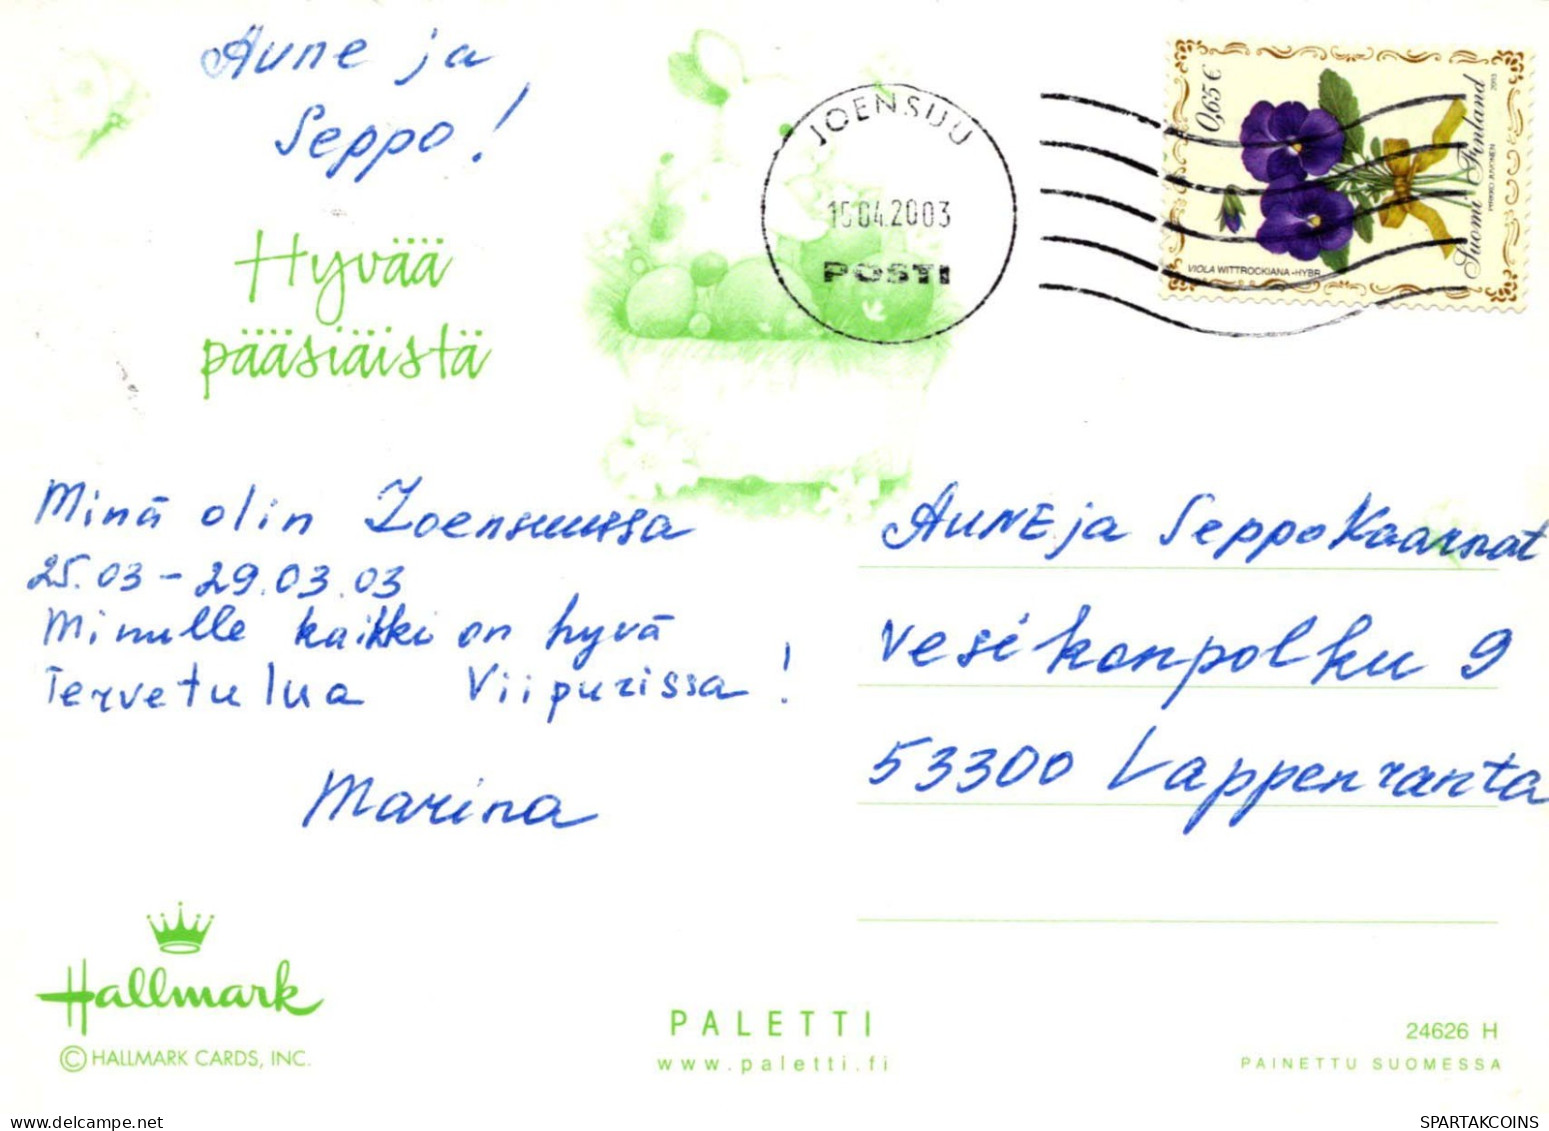 Aune ja
Seppo!
Hyvää
pääsiäistä
JOENSUU
15.04.2003
POSTI
0,65 €
Suomi Finland
2003
PIRKKO JUVONEN
VIOLA WITTROCKIANA-HYBR.
Minä olin Joensuussa
25.03 - 29.03.03
Minulle kaikki on hyvä
Tervetulua Viipurissa!
Marina
AUNE ja Seppo Kaarnat
Vesikonpolku 9
53300 Lappenranta
Hallmark
© HALLMARK CARDS, INC.
PALETTI
www.paletti.fi
24626 H
PAINETTU SUOMESSA
SPARTAKCOINS